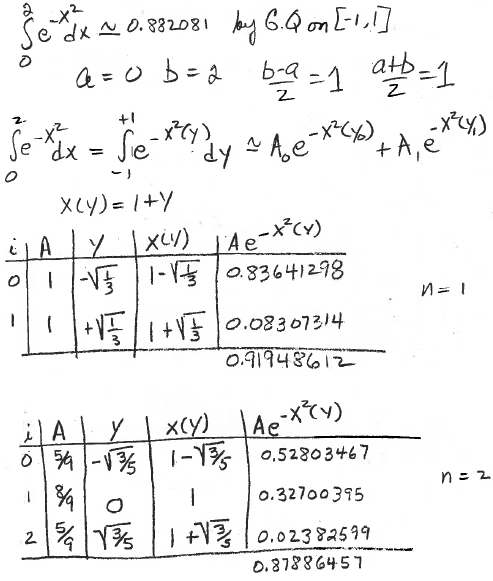 ∫₀² e^{-x²} dx ≃ 0.882081 by G.Q on [-1,1]
a = 0 b = 2 (b-a)/2 = 1 (a+b)/2 = 1
∫₀² e^{-x²} dx = ∫₋₁⁺¹ 1e^{-x²(y)} dy ≃ A₀e^{-x²(y₀)} + A₁e^{-x²(y₁)}
x(y) = 1+y
i | A | y | x(y) | Ae^{-x²(y)}
0 | 1 | -√(1/3) | 1-√(1/3) | 0.83641298
n = 1
1 | 1 | +√(1/3) | 1+√(1/3) | 0.08307314
0.91948612
i | A | y | x(y) | Ae^{-x²(y)}
0 | 5/9 | -√(3/5) | 1-√(3/5) | 0.52803467
n = 2
1 | 8/9 | 0 | 1 | 0.32700395
2 | 5/9 | √(3/5) | 1+√(3/5) | 0.02382599
0.87886457